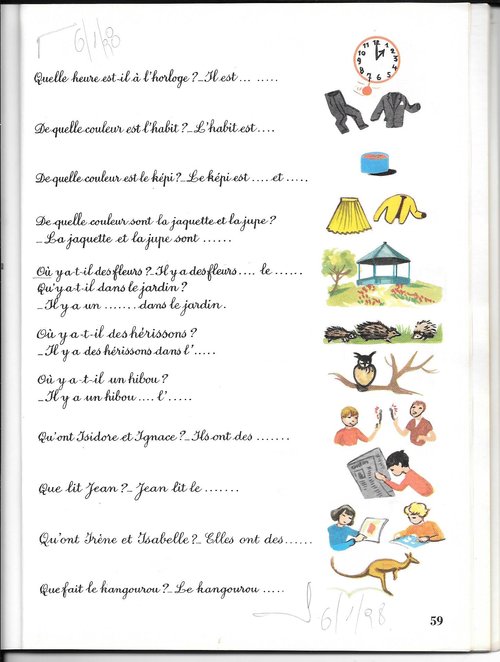 6/1/98
Quelle heure est-il à l'horloge ?_Il est ... .....
De quelle couleur est l'habit ?_ L'habit est....
De quelle couleur est le képi ?_ Le képi est .....et .....
De quelle couleur sont la jaquette et la jupe ?
_La jaquette et la jupe sont ......
Où y a-t-il des fleurs ?_Il y a des fleurs.... le ......
Qu'y a-t-il dans le jardin ?
_Il y a un .......dans le jardin.
Où y a-t-il des hérissons ?
_Il y a des hérissons dans l'.....
Où y a-t-il un hibou ?
_Il y a un hibou .... l'.....
Qu'ont Isidore et Ignace ?_ Ils ont des .......
Que lit Jean ?_ Jean lit le .......
Qu'ont Irène et Isabelle ?_ Elles ont des......
Que fait le kangourou ?_ Le kangourou .....
6/1/98
59